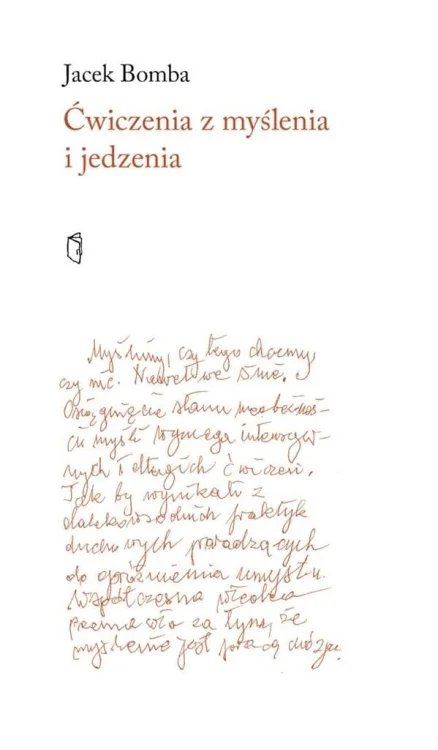 Jacek Bomba
Ćwiczenia z myślenia
i jedzenia
Myślimy, czy tego chcemy,
czy nie. Nawet we śnie.
Osiągnięcie stanu nieobecnoś-
ci myśli wymaga intensyw-
nych i długich ćwiczeń.
Jak by wynikało z
dalekowschodnich praktyk
duchowych prowadzących
do opróżnienia umysłu.
Współczesna wiedza
przemawia za tym, że
myślenie jest pracą mózgu.